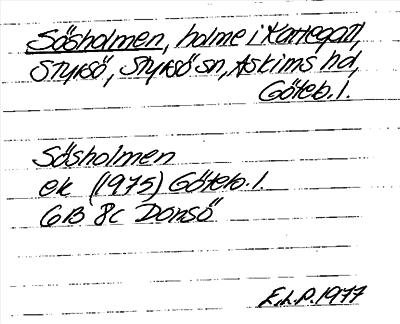 Såsholmen, holme i Kattegatt,
Styrsö, Styrsö sn, Askims hd,
Göteb. l.
Såsholmen
ek (1975) Göteb. l.
6B 8c Donsö
E.L.P. 1977